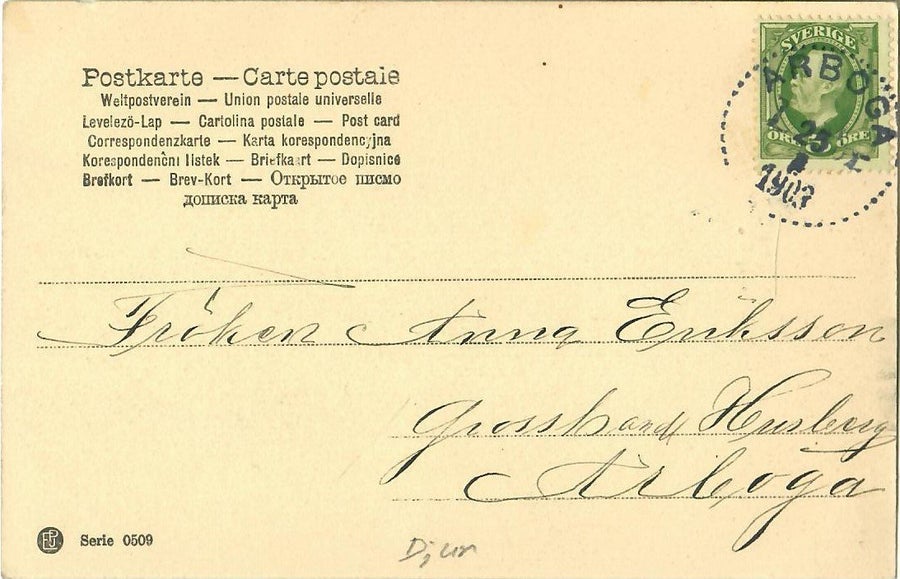 Postkarte — Carte postale
Weltpostverein — Union postale universelle
Levelezö-Lap — Cartolina postale — Post card
Correspondenzkarte — Karta korespondencyjna
Korespondenčni listek — Briefkaart — Dopisnice
Brefkort — Brev-Kort — Открытое писмо
дописка карта
SVERIGE
ÖRE 5 ÖRE
ARBOGA
23
1903
Fröken Anna Eriksson
Grosshandl Husberg
Arboga
Serie 0509
Djur